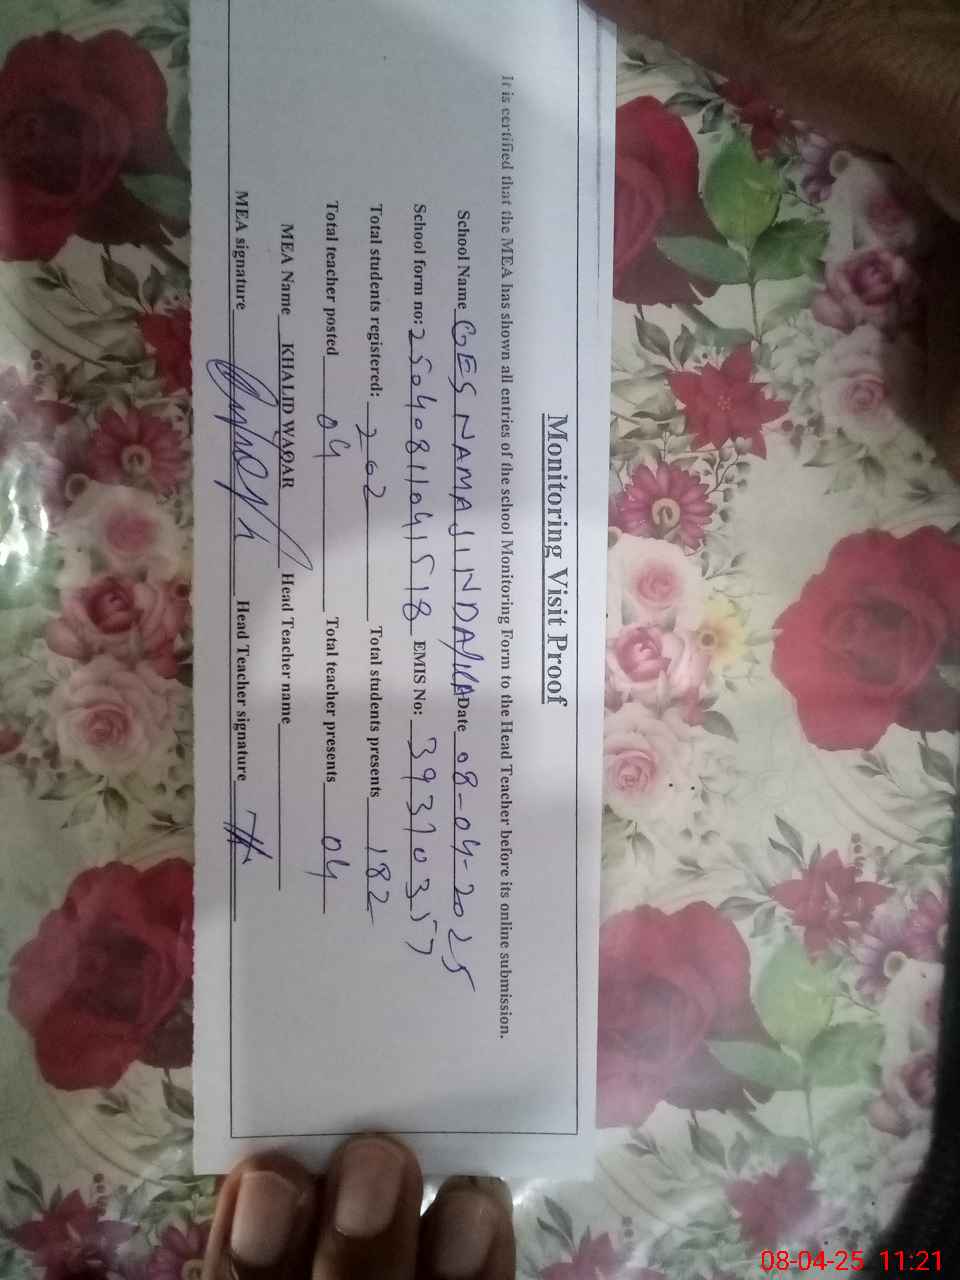 Monitoring Visit Proof
It is certified that the MEA has shown all entries of the school Monitoring Form to the Head Teacher before its online submission.
School Name GES NAMA JINDAJKA Date 08-04-2025
School form no: 25040811041518 EMIS No: 39310357
Total students registered: 202 Total students presents 182
Total teacher posted 04 Total teacher presents 04
MEA Name KHALID WAQAR Head Teacher name
MEA signature Head Teacher signature
08-04-25 11:21